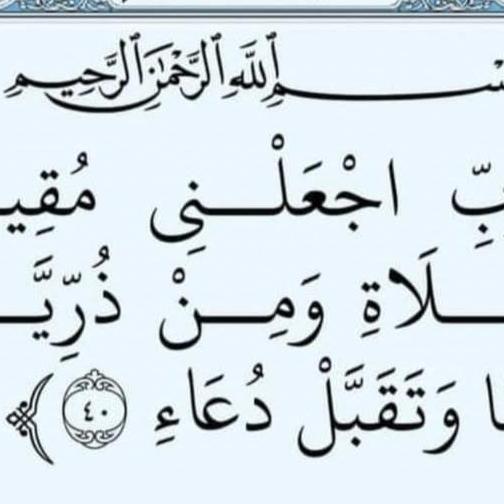 ـسم ٱللَّهِ ٱلرَّحْمَٰنِ ٱلرَّحِيمِ
بِّ اجْعَلْنِى مُقِيـ
ـلَاةِ وَمِنْ ذُرِّيَّـ
ـا وَتَقَبَّلْ دُعَاءِ ﴿٤٠